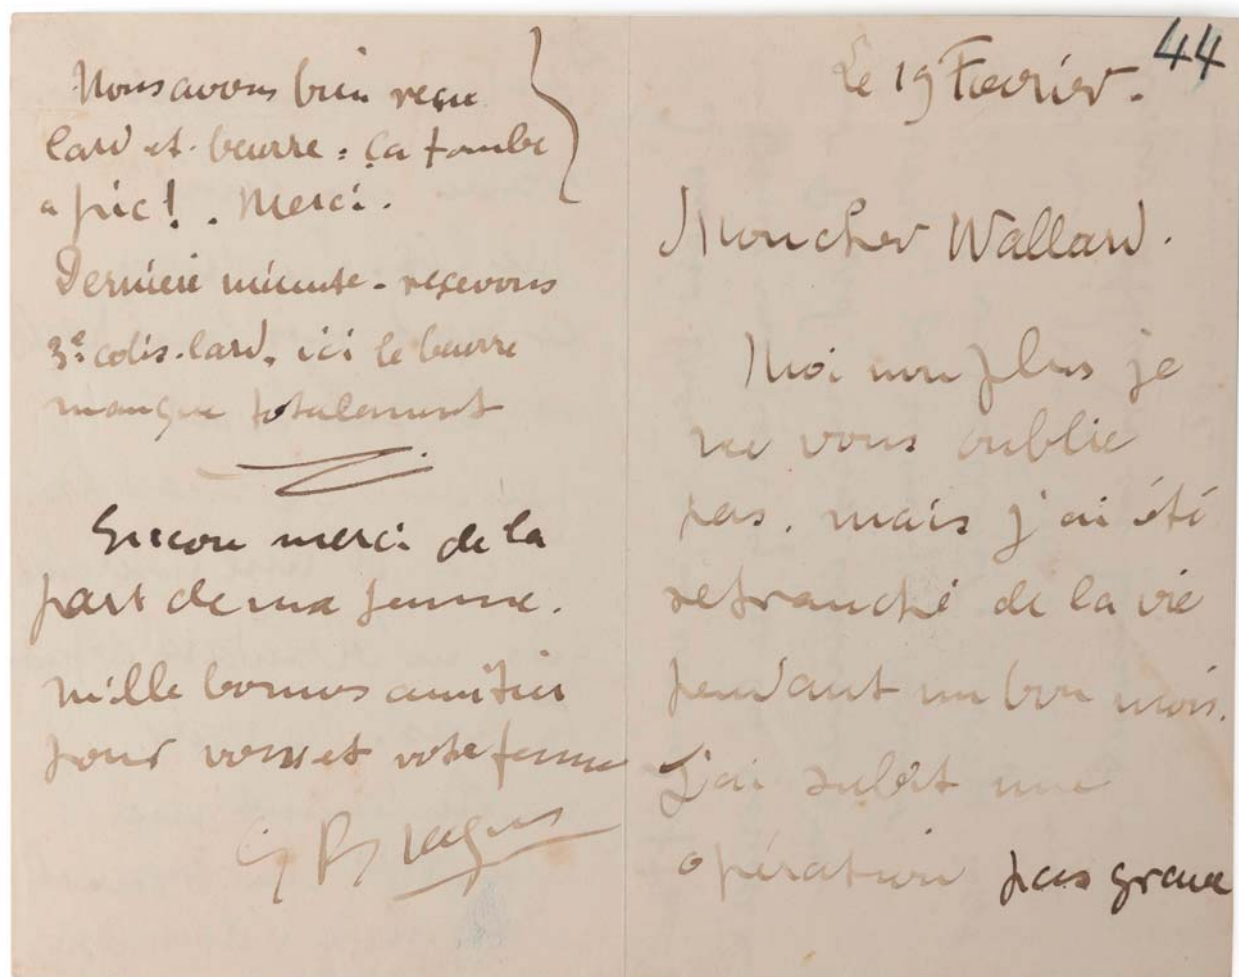 Nous avons bien reçu
lard et beurre = ça tombe
a pic ! . Merci.
Derniere minute - reçevons
3e colis - lard, ici le beurre
manque totalement
Encore merci de la
part de ma femme.
Mille bonnes amitiés
pour vous et votre femme
Le 19 Fevrier. 44
Mon cher Wallard.
Moi non plus je
ne vous oublie
pas. mais j'ai été
retranché de la vie
pendant un bon mois.
J'ai subit une
opération pas grave